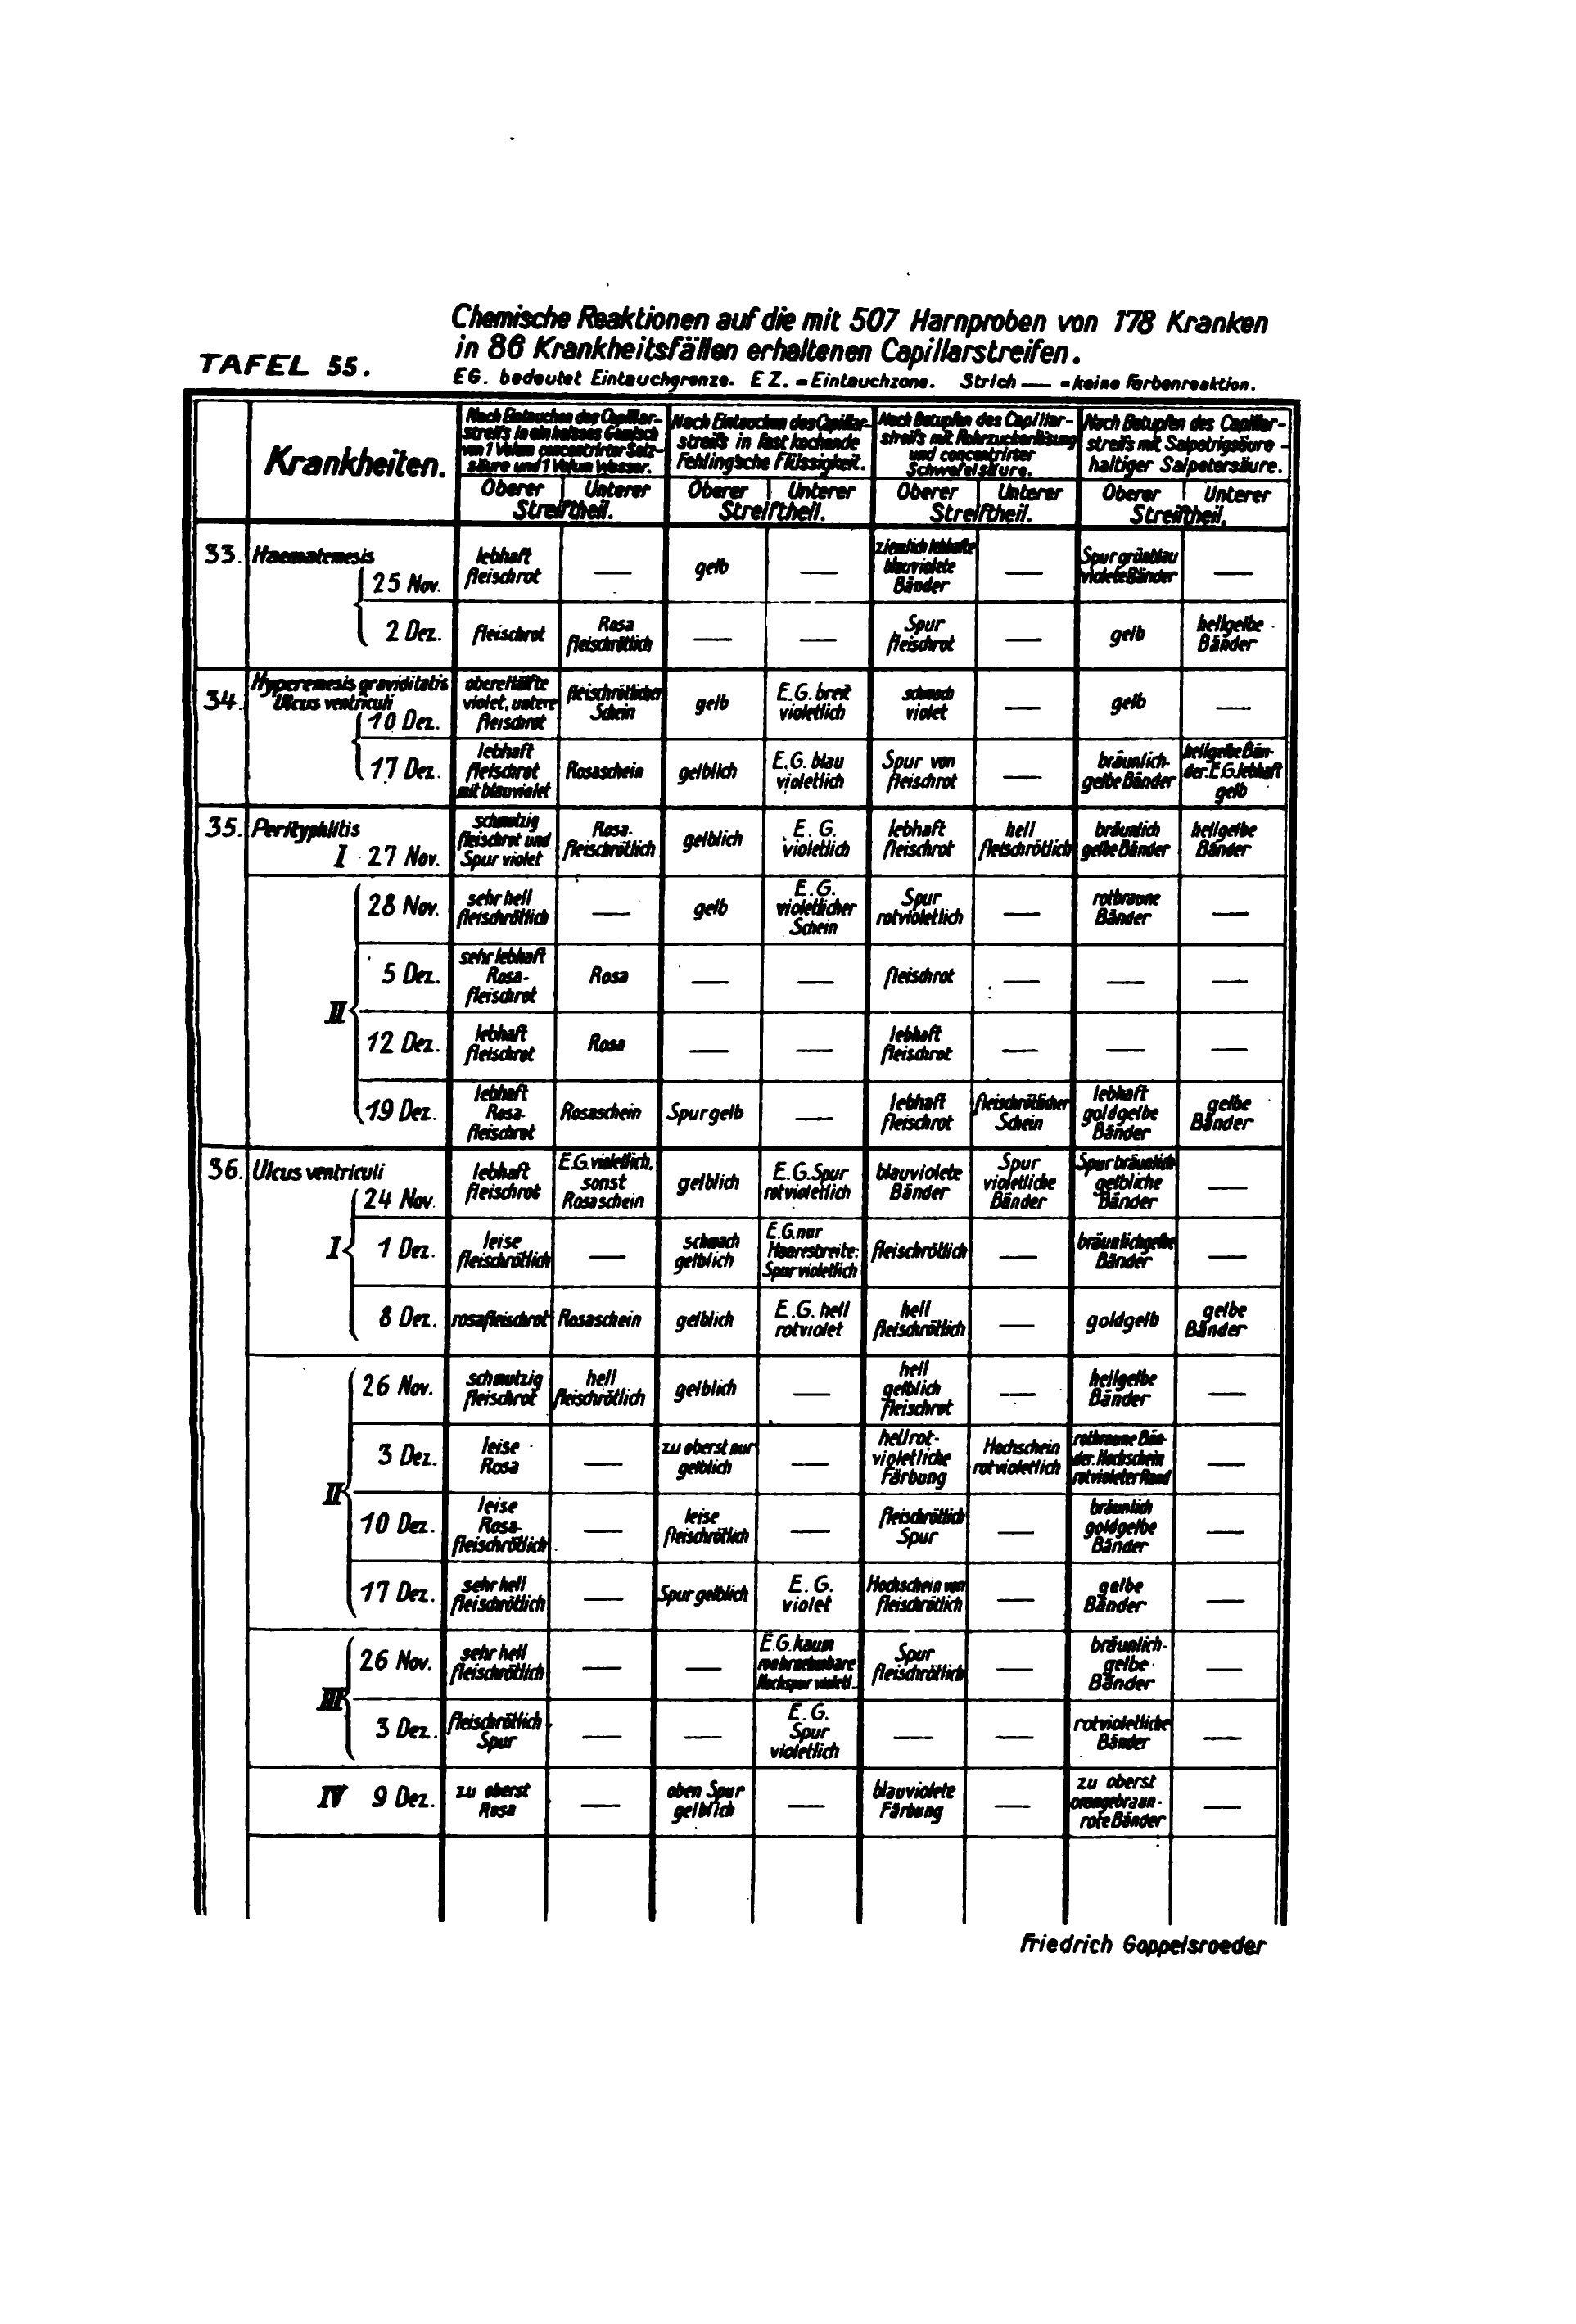 Chemische Reaktionen auf die mit 507 Harnproben von 178 Kranken
in 86 Krankheitsfällen erhaltenen Capillarstreifen.
TAFEL 55.
EG. bedeutet Eintauchgrenze. E Z. = Eintauchzone. Strich — = keine Farbenreaktion.
Krankheiten.
Nach Eintauchen des Capillar-
streifs in ein heisses Gemisch
von 1 Volum concentrirter Salz-
säure und 1 Volum Wasser.
Nach Eintauchen des Capillar-
streifs in fast kochende
Fehling'sche Flüssigkeit.
Nach Betupfen des Capillar-
streifs mit Rohrzuckerlösung
und concentrirter
Schwefelsäure.
Nach Betupfen des Capillar-
streifs mit Salpetrigsäure-
haltiger Salpetersäure.
Oberer Unterer Oberer Unterer Oberer Unterer Oberer Unterer
Streiftheil. Streiftheil. Streiftheil. Streiftheil.
33. Haematemesis
25 Nov.
lebhaft
fleischrot
—
gelb
—
ziemlich lebhafte
blauviolete
Bänder
—
Spur grünblau
violete Bänder
—
2 Dez.
fleischrot
Rosa
fleischrötlich
—
—
Spur
fleischrot
—
gelb
hellgelbe
Bänder
34. Hyperemesis graviditatis
Ulcus ventriculi
10 Dez.
obere Hälfte
violet, untere
fleischrot
fleischrötlicher
Schein
gelb
E.G. breit
violetlich
schwach
violet
—
gelb
—
17 Dez.
lebhaft
fleischrot
mit blauviolet
Rosaschein
gelblich
E.G. blau
violetlich
Spur von
fleischrot
—
bräunlich-
gelbe Bänder
hellgelbe Bän-
der. E.G. lebhaft
gelb
35. Perityphlitis
I 27 Nov.
schmutzig
fleischrot und
Spur violet
Rosa-
fleischrötlich
gelblich
E. G.
violetlich
lebhaft
fleischrot
hell
fleischrötlich
bräunlich
gelbe Bänder
hellgelbe
Bänder
II
28 Nov.
sehr hell
fleischrötlich
—
gelb
E.G.
violetlicher
Schein
Spur
rotvioletlich
—
rotbraune
Bänder
—
5 Dez.
sehr lebhaft
Rosa-
fleischrot
Rosa
—
—
fleischrot
—
—
—
12 Dez.
lebhaft
fleischrot
Rosa
—
—
lebhaft
fleischrot
—
—
—
19 Dez.
lebhaft
Rosa-
fleischrot
Rosaschein
Spur gelb
—
lebhaft
fleischrot
fleischrötlicher
Schein
lebhaft
goldgelbe
Bänder
gelbe
Bänder
36. Ulcus ventriculi
I
24 Nov.
lebhaft
fleischrot
E.G. violetlich,
sonst
Rosaschein
gelblich
E.G. Spur
rotvioletlich
blauviolete
Bänder
Spur
violetliche
Bänder
Spur bräunlich
gelbliche
Bänder
—
1 Dez.
leise
fleischrötlich
—
schwach
gelblich
E.G. nur
Haaresbreite:
Spur violetlich
fleischrötlich
—
bräunlichgelbe
Bänder
—
8 Dez.
rosafleischrot
Rosaschein
gelblich
E.G. hell
rotviolet
hell
fleischrötlich
—
goldgelb
gelbe
Bänder
II
26 Nov.
schmutzig
fleischrot
hell
fleischrötlich
gelblich
—
hell
gelblich
fleischrot
—
hellgelbe
Bänder
—
3 Dez.
leise
Rosa
—
zu oberst nur
gelblich
—
hellrot-
violetliche
Färbung
Hochschein
rotvioletlich
rotbraune Bän-
der. Hochschein
rotvioleter Rand
—
10 Dez.
leise
Rosa-
fleischrötlich
—
leise
fleischrötlich
—
fleischrötlich
Spur
—
bräunlich
goldgelbe
Bänder
—
17 Dez.
sehr hell
fleischrötlich
—
Spur gelblich
E. G.
violet
Hochschein von
fleischrötlich
—
gelbe
Bänder
—
III
26 Nov.
sehr hell
fleischrötlich
—
—
E.G. kaum
Hochspur violetl.
Spur
fleischrötlich
—
bräunlich-
gelbe
Bänder
—
3 Dez.
fleischrötlich
Spur
—
—
E. G.
Spur
violetlich
—
—
rotvioletliche
Bänder
—
IV 9 Dez.
zu oberst
Rosa
—
oben Spur
gelblich
—
blauviolete
Färbung
—
zu oberst
orangebraun-
rote Bänder
—
Friedrich Goppelsroeder